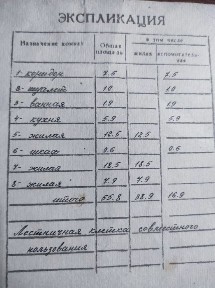 ЭКСПЛИКАЦИЯ
Назначение комнат Общая площадь в том числе
жилая вспомогательная
1- коридор 7.5 7.5
2- туалет 1.0 1.0
3- ванная 1.9 1.9
4- кухня 5.9 5.9
5- жилая 12.5 12.5
6- шкаф 0.6 0.6
7- жилая 18.5 18.5
8- жилая 7.9 7.9
итого 55.8 38.9 16.9
Лестничная клетка совместного
пользования